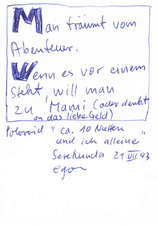 Man träumt vom
Abenteuer.
Wenn es vor einem
steht, will man
zu Mami (oder denkt
an das liebe Geld)
Polaroid "ca. 10 Nutten
und ich alleine"
21 VII 93
Egon